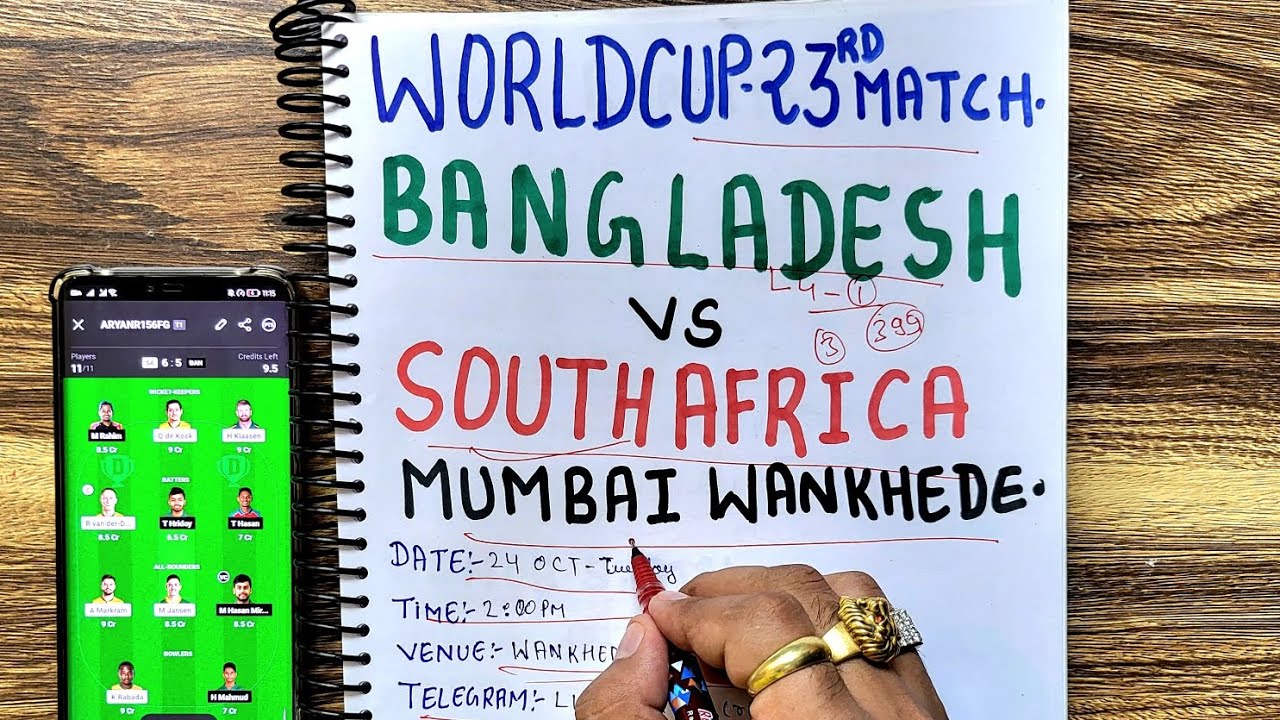 WORLDCUP-23RD MATCH.
BANGLADESH
L4-①
3 399
VS
SOUTH AFRICA
MUMBAI WANKHEDE.
DATE:- 24 OCT-Tuesday
TIME:- 2:00PM
VENUE:- WANKHED
TELEGRAM:-
11:15
ARYANR156FG T1
Players
Credits Left
11/11
SA 6:5 BAN
9.5
WICKET-KEEPERS
M Rahim
Q de Kock
H Klaasen
8.5 Cr
9 Cr
9 Cr
BATTERS
R van der-D...
T Hridoy
T Hasan
8.5 Cr
6.5 Cr
7 Cr
ALL-ROUNDERS
A Markram
M Jansen
M Hasan Mir...
9 Cr
8.5 Cr
8.5 Cr
BOWLERS
K Rabada
H Mahmud
9 Cr
7 Cr